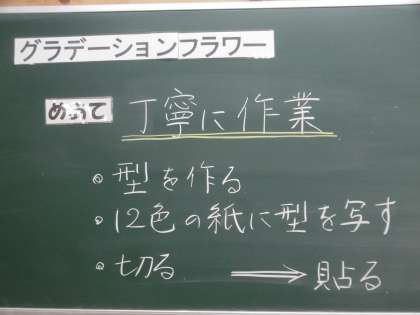 グラデーションフラワー
めあて 丁寧に作業
・型を作る
・12色の紙に型を写す
・切る ⟹ 貼る